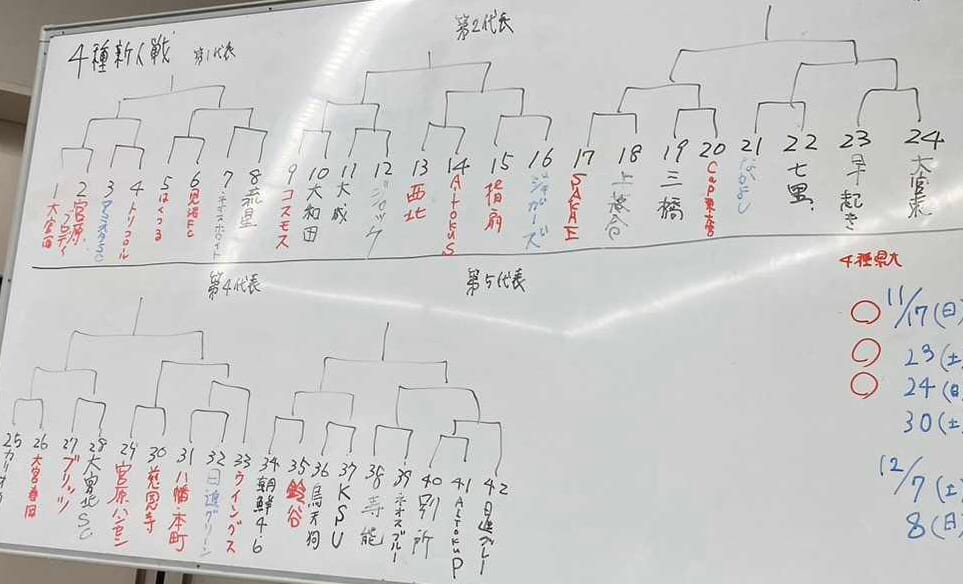 4種新人戦 第1代表
第2代表
1 大宮西
2 宮原
3
4 トリコロール
5 はくつる
6 見沼FC
7 ネオスホワイト
8 流星
9 コスモス
10 大和田
11 大成
12 ジロック
13 西北
14 AltokuS
15 指扇
16 ジャガーズ
17 SAKAE
18 上落合
19 三橋
20 Cap東大宮
21 なかよし
22 七里
23 早起き
24 大宮東
第4代表
第5代表
4種県大
11/17(日)
23(土
24(日
30(土)
12/7(土)
8(日)
25
26 大宮春日
27 ブリッツ
28 大宮北SC
29 宮原
30 慈恩寺
31 八幡・本町
32 日進グリーン
33 ウイングス
34 朝鮮4・6
35 鈴谷
36 烏天狗
37 KSU
38 寿能
39 ネオスブルー
40 別所
41 AltokuP
42 日進